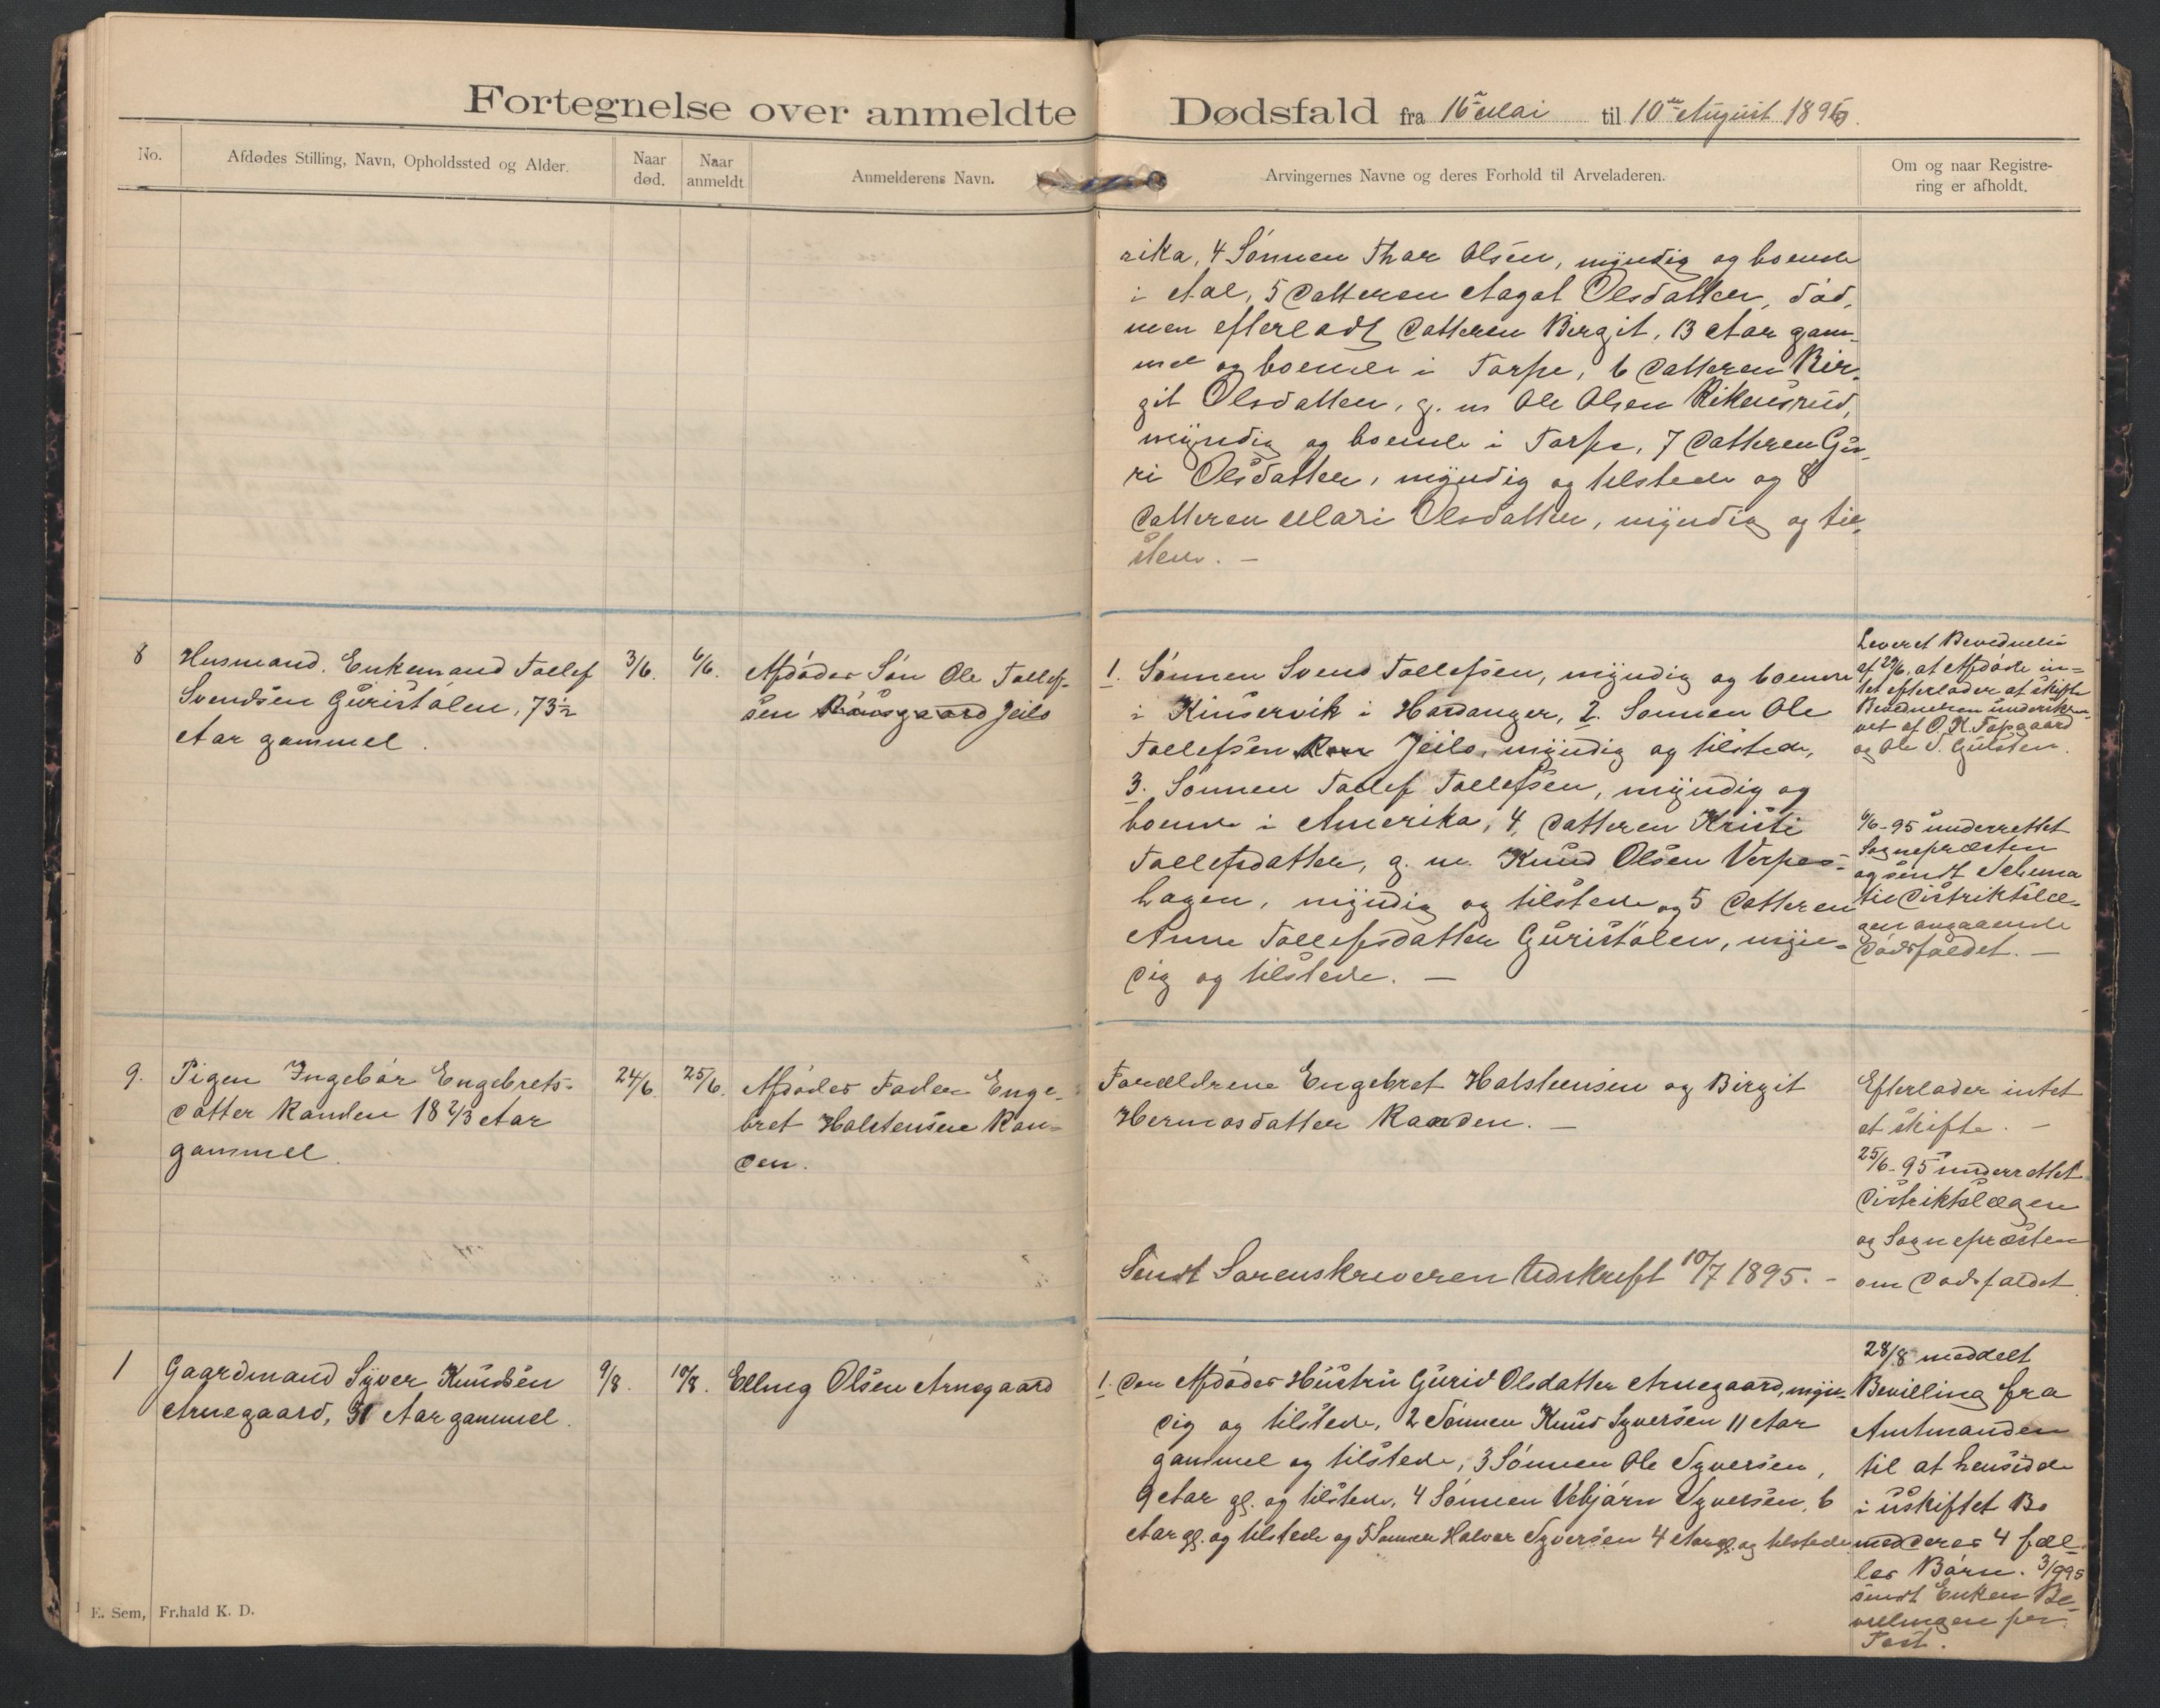 Fortegnelse over anmeldte Dødsfald fra 16de Mai til 10de August 1895.
No.
Afdødes Stilling, Navn, Opholdssted og Alder.
Naar død.
Naar anmeldt
Anmelderens Navn.
Arvingernes Navne og deres Forhold til Arveladeren.
Om og naar Registre-
ring er afholdt.
rika, 4 Sønnen Thor Olsen, myndig og boende
i Aal, 5 Datteren Aagot Olsdatter, død,
men efterladt Datteren Birgit, 13 Aar gam-
mel og boende i Torpe, 6 Datteren Bir-
git Olsdatter, g. m Ole Olsen
myndig og boende i Torpe, 7 Datteren Gu-
ri Olsdatter, myndig og tilstede og 8
Datteren Mari Olsdatter, myndig og til-
stede. —
8
Husmand. Enkemand Tollef
Svendsen Guristølen, 73½
Aar gammel.
3/6.
6/6.
Afdødes Søn Ole Tollef-
sen Rønsgaard Jeilo
1. Sønnen Svend Tollefsen, myndig og boende
i Kinservik i Hardanger, 2. Sønnen Ole
Tollefsen Jeilo, myndig og tilstede,
3. Sønnen Tollef Tollefsen, myndig og
boende i Amerika, 4, Datteren Kristi
Tollefsdatter, g. m. Knud Olsen Verpes-
hagen, myndig og tilstede og 5 Datteren
Anne Tollefsdatter Guristølen, myn-
dig og tilstede. —
Leveret Bevidnelse
af 22/6, at Afdøde in-
tet efterlader at skifte
Bevidnelsen underskre-
vet af O. K. Tofsgaard
og Ole T. Gulsten.
6/6-95 underrettet
Sognepræsten
og sendt Schema
til Distriktslæ-
gen angaaende
Dødsfaldet. —
9.
Pigen Ingebør Engebrets-
datter Randen 18 2/3 Aar
gammel.
24/6.
25/6.
Afdødes Fader Enge-
bret Holstensen Ran-
den.
Forældrene Engebret Holstensen og Birgit
Hermosdatter Randen. —
Efterlader intet
at skifte. —
25/6-95 underrettet
Distriktslægen
og Sognepræsten
om Dødsfaldet.
Sendt Sorenskriveren Udskrift 10/7 1895. —
1
Gaardmand Syver Knudsen
Arnegaard, 51 Aar gammel.
9/8.
10/8.
Elling Olsen Arnegaard
1. Den Afdødes Hustru Gurid Olsdatter Arnegaard, myn-
dig og tilstede, 2 Sønnen Knud Syversen 11 Aar
gammel og tilstede, 3 Sønnen Ole Syversen,
9 Aar gl. og tilstede, 4 Sønnen Vebjørn Syversen, 6
Aar gl. og tilstede og 5 Sønnen Halvor Syversen 4 Aar gl. og tilstede.
28/8 meddelt
Bevilling fra
Amtmanden
til at hensidde
i uskiftet Bo
med deres 4 fæl-
les Børn. 3/9 95
sendt Enken Be-
villingen per
Post.
E. Sem, Fr.hald K. D.